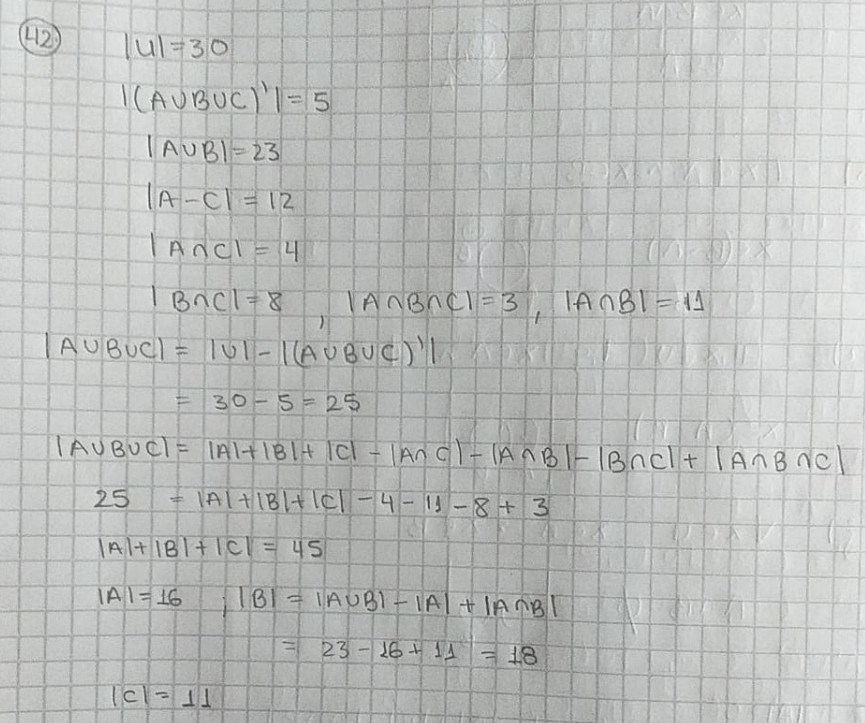 42 |U|=30
|(A∪B∪C)'|=5
|A∪B|=23
|A-C|=12
|A∩C|=4
|B∩C|=8, |A∩B∩C|=3, |A∩B|=11
|A∪B∪C|=|U|-|(A∪B∪C)'|
=30-5=25
|A∪B∪C|=|A|+|B|+|C|-|A∩C|-|A∩B|-|B∩C|+|A∩B∩C|
25=|A|+|B|+|C|-4-11-8+3
|A|+|B|+|C|=45
|A|=16, |B|=|A∪B|-|A|+|A∩B|
=23-16+11=18
|C|=11